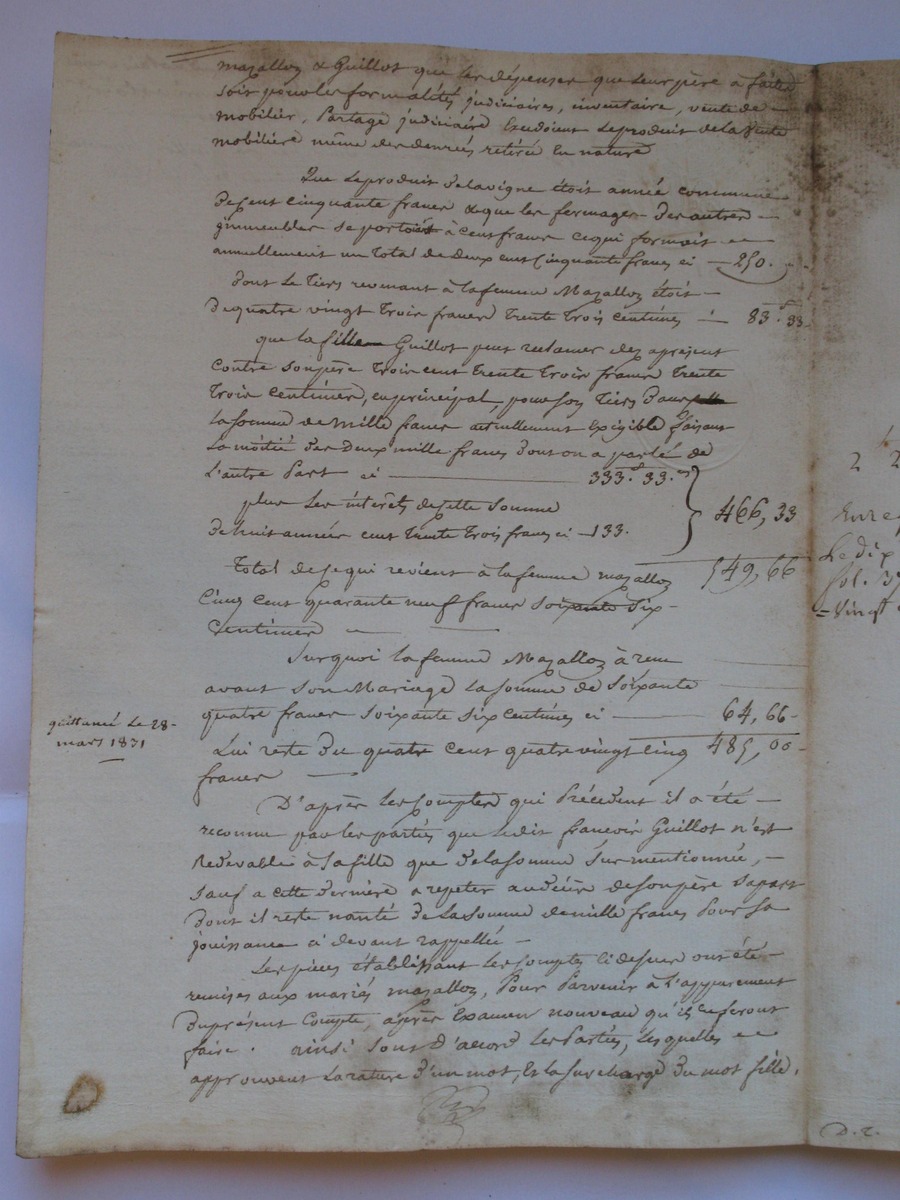 mazalloz & Guillot que les dépenses que leur père à faites
soit pour les formalités judiciaires, inventaire, vente de
mobilier, Partage judiciaire Excedoient le produit de la Vente
mobilière même des denrées retirée En nature
Que le produit de la vigne étoit année commune
de cent cinquante francs & que les fermages des autres
immeubles se portoit à cent francs ce qui formoit
annuellement un Total de deux cent Cinquante francs ci — 250.
dont le Tiers revenant à la femme Mazalloz étoit —
de quatre vingt trois francs trente trois centimes — 83.33
que la fille Guillot peut reclamer dès aprésent
contre son père trois cent trente trois francs trente
trois centimes, en principal, pour son Tiers dans
la somme de mille francs actuellement Exigible faisant
la moitié des deux mille francs dont on a parlé de
L'autre Part ci — 333.33
466,33
plus les intérêts de cette somme
de huit années cent trente trois francs ci — 133.
Total de ce qui revient à la femme mazalloz 549,66
Cinq cent quarante neuf francs soixante six
Centimes —
Sur quoi la femme Mazalloz à recu
avant son Mariage la somme de soixante
quatre francs soixante six centimes ci — 64,66
quittancé le 28
mars 1831
Lui reste du quatre cent quatre vingt cinq 485,00
francs —
D'après les comptes qui Précédent il a été —
reconnu par les parties que ledit françois Guillot n'est
Redevable à sa fille que de la somme sur mentionnée, —
sauf a cette dernière a repeter au décès de son père sa part
dont il reste nanti de la somme de mille francs Pour sa
jouissance ci devant rappellée —
Les pièces établissant les comptes ci dessus ont été
remises aux mariés mazalloz, Pour Parvenir à L'appurement
du présent Compte, après Examen nouveau qu'ils en feront
faire. ainsi sont d'accord les Parties, lesquelles
approuvent la rature d'un mot, Et la surcharge du mot fille.
2 2
Le dix
fol. 37
Vingt